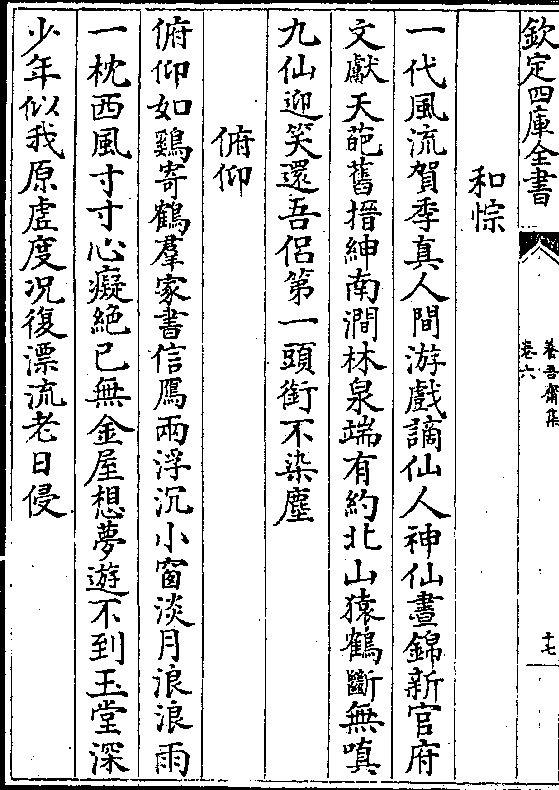 欽定四庫全書
養吾齋集
卷六
十七
和悰
一代風流賀季真人間游戲謫仙人神仙晝錦新官府
文獻天葩舊搢紳南澗林泉端有約北山猿鶴斷無嗔
九仙迎笑還吾侶第一頭銜不染塵
俯仰
俯仰如鷄寄鶴羣家書信鴈兩浮沉小窗淡月浪浪雨
一枕西風寸寸心癡絕已無金屋想夢遊不到玉堂深
少年似我原虛度况復漂流老日侵